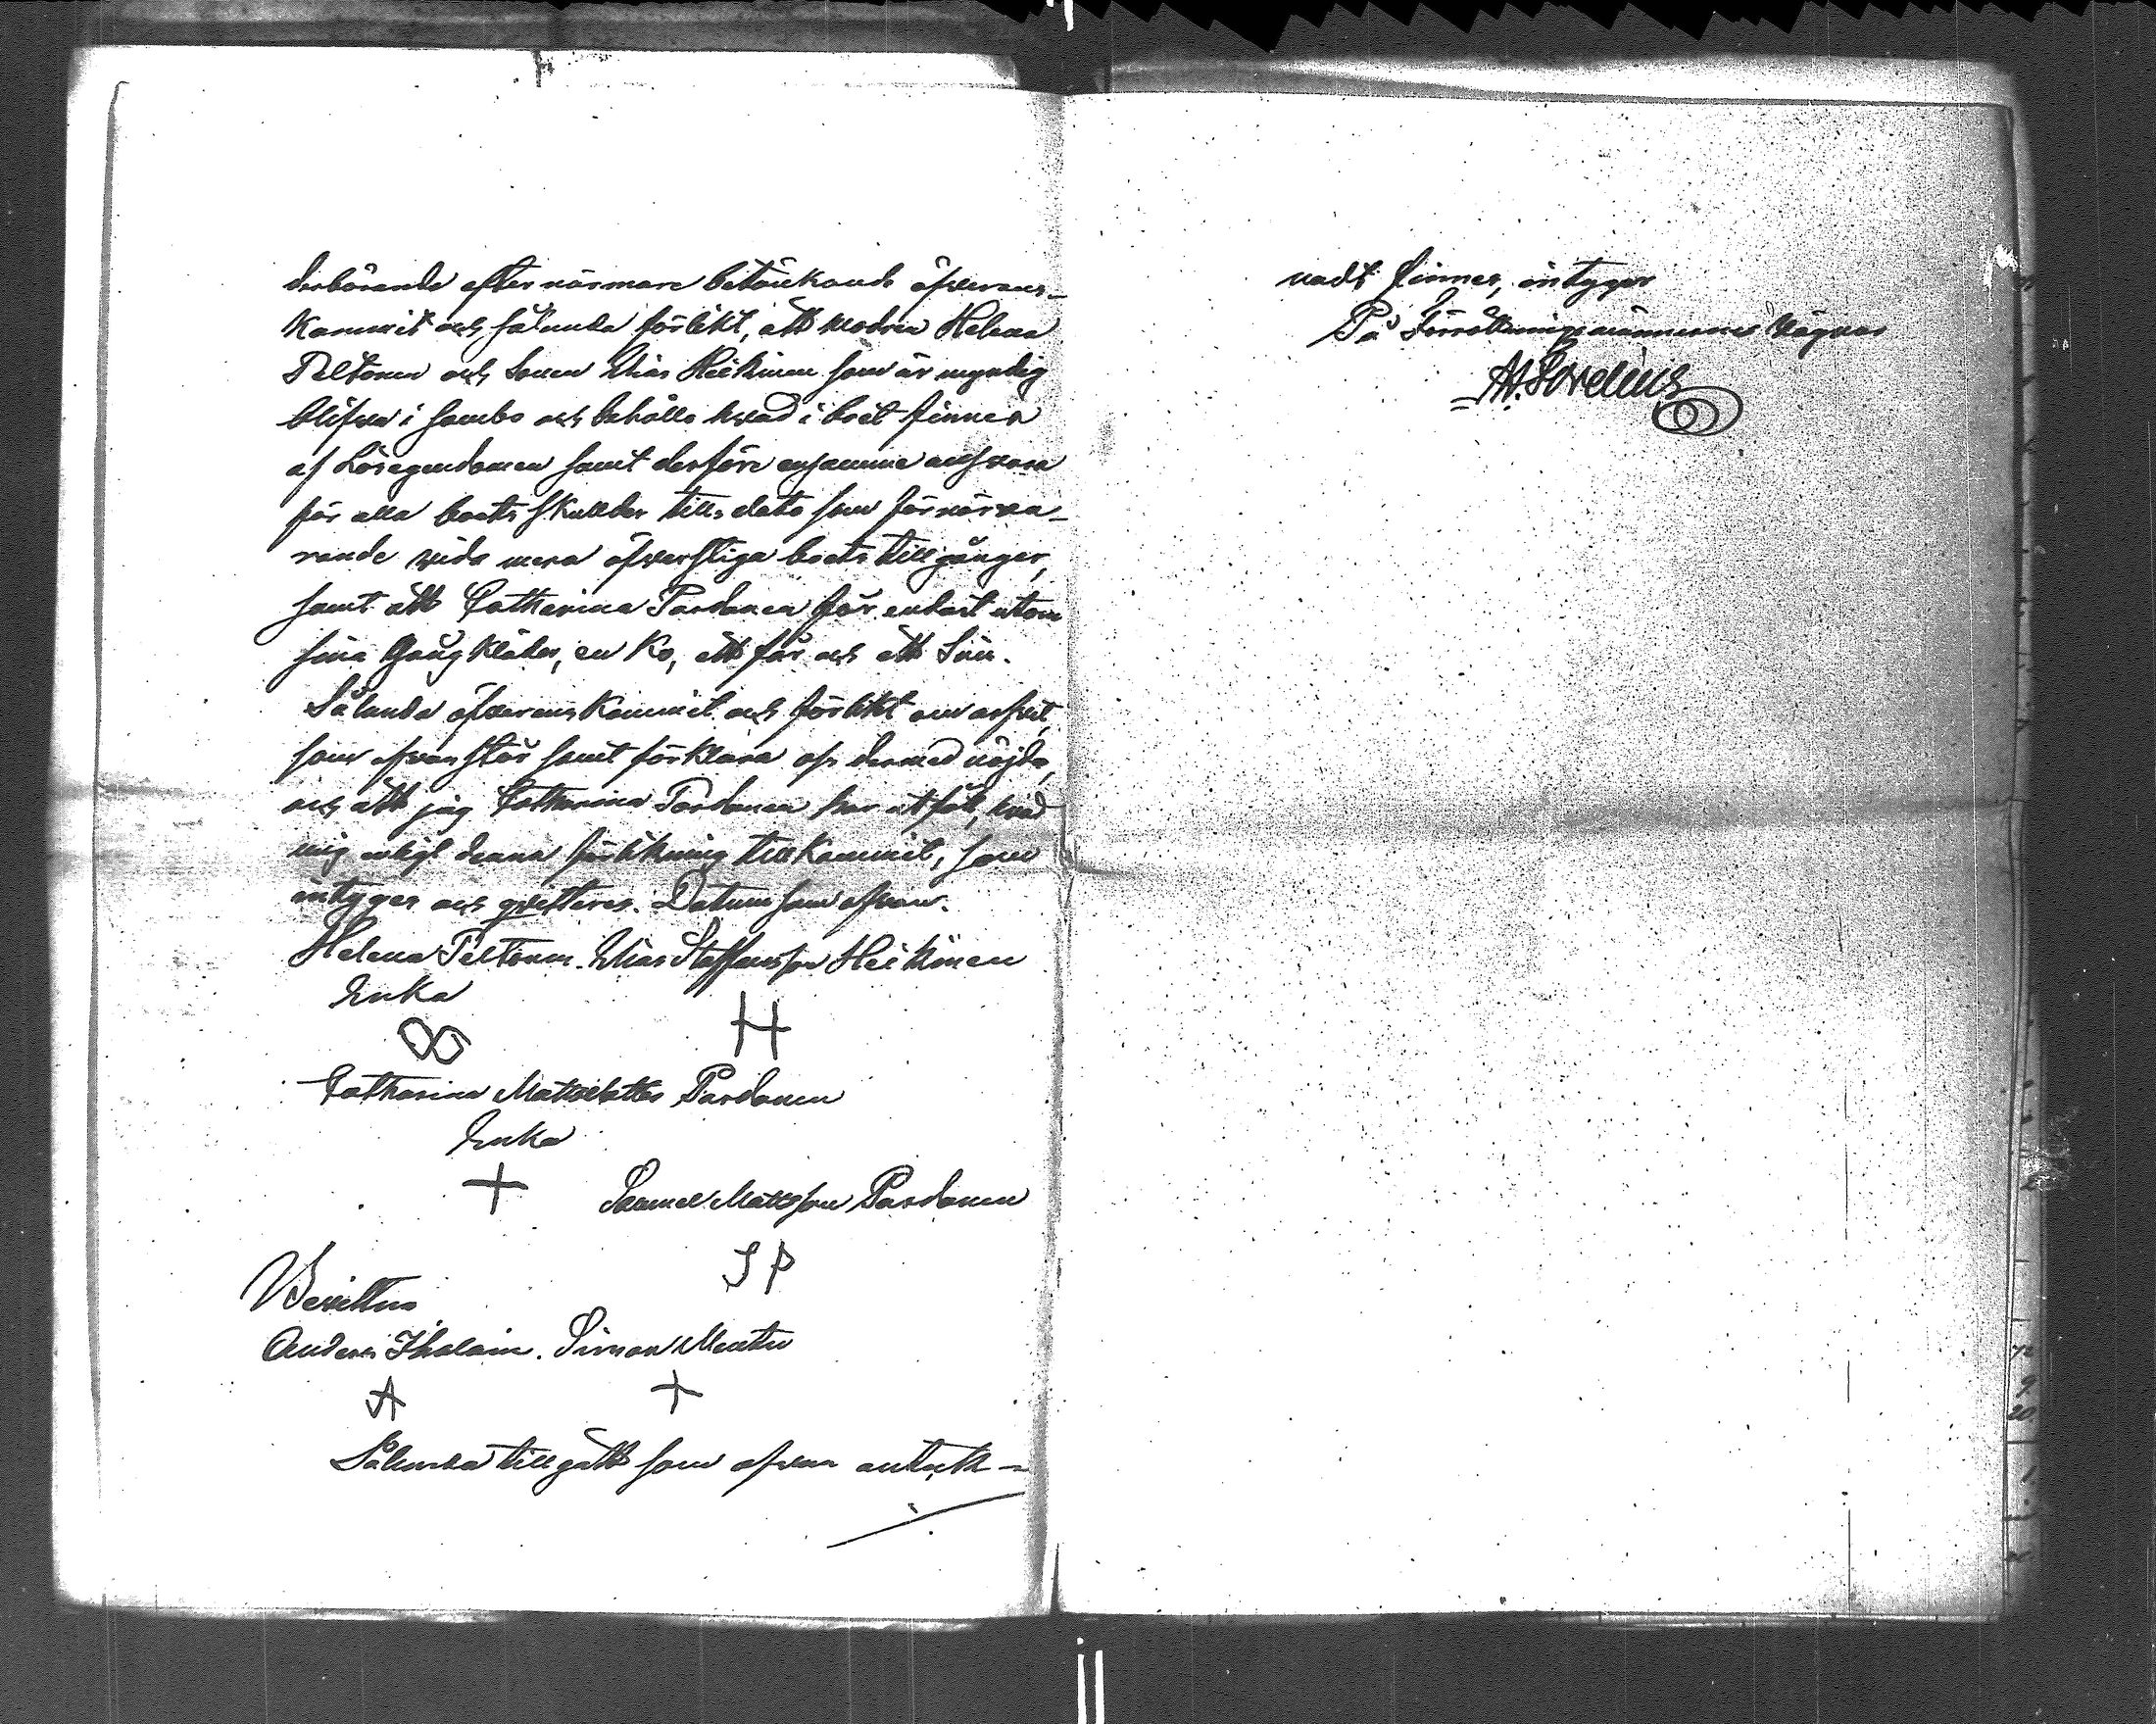 derbörande efter närmare betänkande öfverens-
kommit och sålunda förlikt, att modren Helena
Peltonen och Sonen Elias Heikinen som är myndig
blifva i sambo och behålla hvad i boet finnes
af Lösegendomen samt derföre ensamme ansvara
för alla boets skulder tills dato som förnärva-
rande vida mera öfverstiga boets tillgångar,
samt att Catharina Pardanen får endast utom
sina Gångkläder, en Ko, ett får och ett Svin.
Sålunda öfverenskommit och förlikt om arfvet,
som ofvanstår samt förklara oss dermed nöjda,
och att jag Catharina Pardanen har utfått, hvad
mig enligt denna förlikning tillkommit, som
intygas och qvitteras. Datum som ofvan.
Helena Peltonen. Elias Staffansson Heikinen
Enka
H
Catharina Mattsdotter Pardanen
Enka
+ Samuel Mattsson Pardanen
S P
Bevittna
Anders Ihalain. Simon
A +
Sålunda tillgått som ofvan anteck-
nadt finnes, intygar
På Förrättningsmännernes vägnar
Sovelius